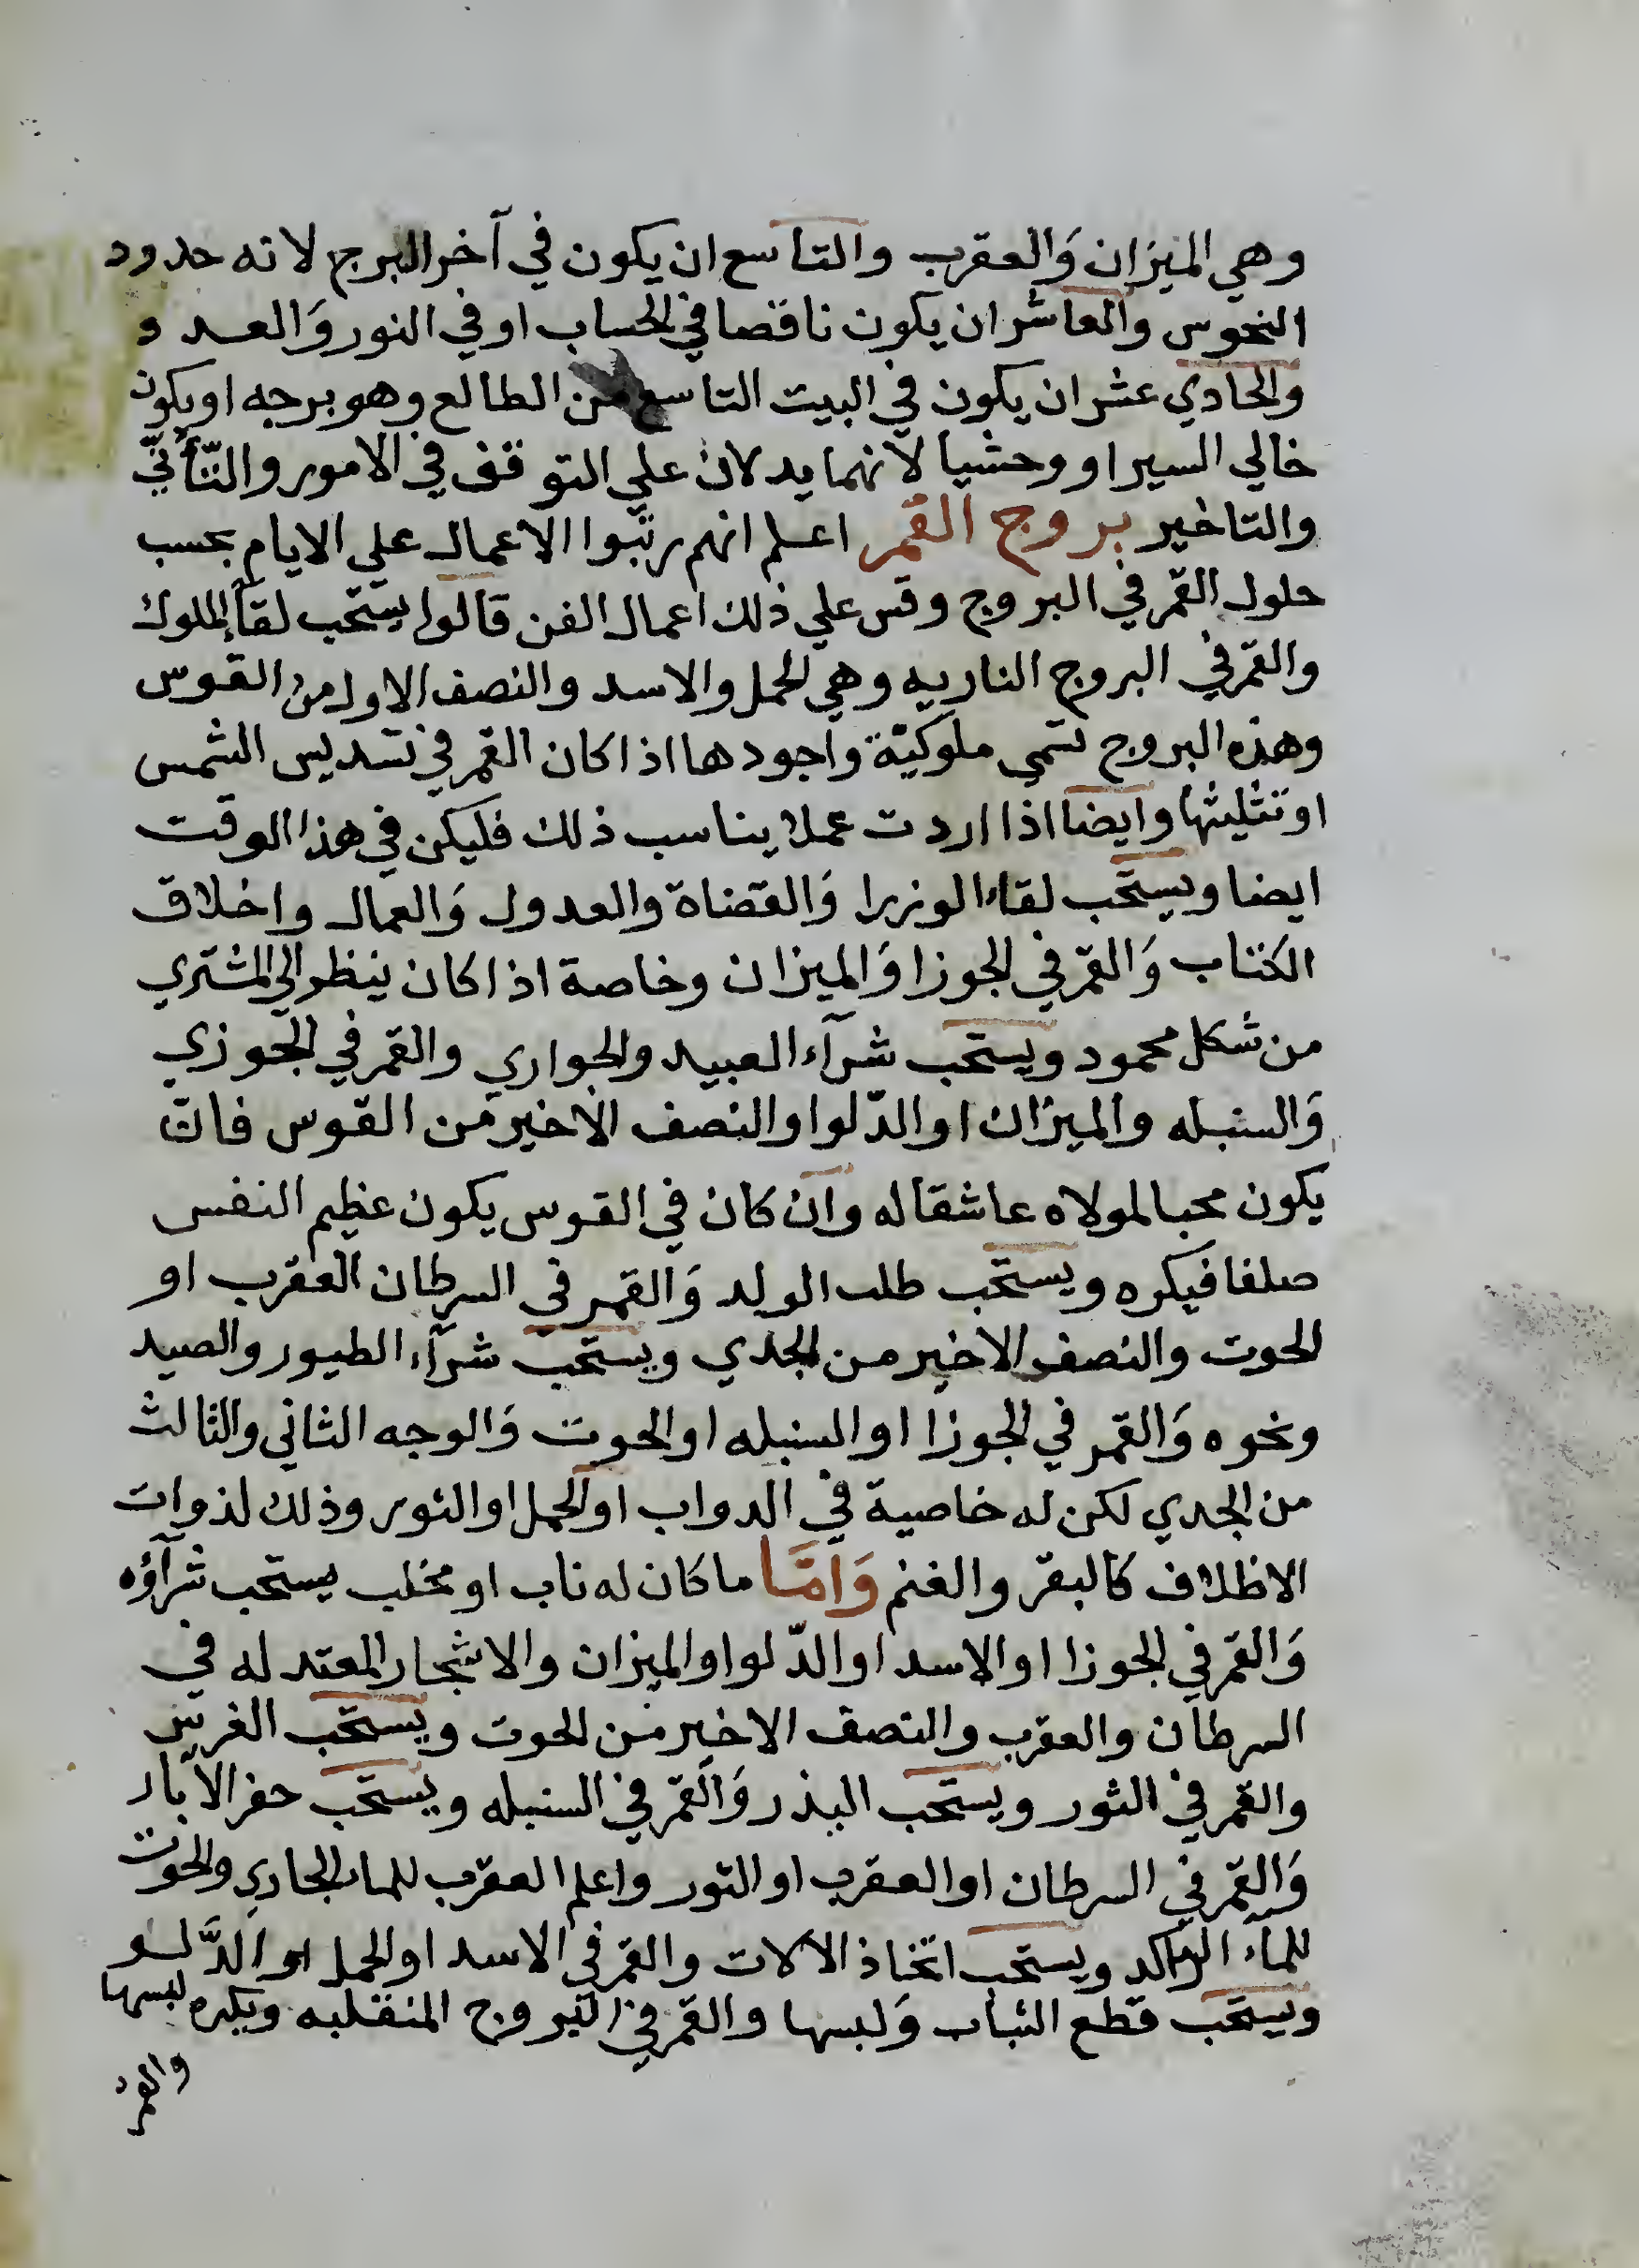 وهي الميزان وَالعقرب والتاسع ان يكون في آخر البرج لانه حدود
النحوس والعاشر ان يكون ناقصا في الحساب او في النور وَالعدد
والحادي عشر ان يكون في البيت التاسع من الطالع وهو برجه او يكون
خالي السير او وحشيا لانهما يدلان علي التوقف في الامور والتّأنّي
والتاخير بروج القمر اعلم انهم رتبوا الاعمال علي الايام بحسب
حلول القمر في البروج وقس علي ذلك اعمال الفن قالوا يستحب لقآ الملوك
والقمر في البروج الناريه وهي الحمل والاسد والنصف الاول من القوس
وهذه البروج تسمي ملوكيّة واجودها اذا كان القمر في تسديس الشمس
او تثليثها وايضا اذا اردت عملا يناسب ذلك فليكن في هذا الوقت
ايضا ويستحب لقاء الوزرا وَالقضاة والعدول وَالعمال واخلاق
الكتاب وَالقمر في الجوزا وَالميزان وخاصة اذا كان ينظر الي المشتري
من شكل محمود ويستحب شرآء العبيد والجواري والقمر في الجوزي
وَالسنبله والميزان او الدّلو او النصف الاخير من القوس فان
يكون محبا لمولاه عاشقا له وان كان في القوس يكون عظيم النفس
صلفا فيكره ويستحب طلب الولد وَالقمر في السرطان العقرب او
الحوت والنصف الاخير من الجدي ويستحب شرآء الطيور والصيد
ونحوه وَالقمر في الجوزا او السنبله او الحوت وَالوجه الثاني والثالث
من الجدي لكن له خاصية في الدواب او الحمل او الثور وذلك لذوات
الاظلاف كالبقر والغنم وَامَّا ما كان له ناب او مخلب يستحب شرآؤه
وَالقمر في الجوزا او الاسد او الدّلو او الميزان والاشجار المعتدله في
السرطان والعقرب والنصف الاخير من الحوت ويستحب الغرس
والقمر في الثور ويستحب البذر وَالقمر في السنبله ويستحب حفر الآبار
وَالقمر في السرطان او العقرب او الثور واعلم العقرب للماء الجاري والحوت
للمآء الراكد ويستحب اتخاذ الآلات والقمر في الاسد او الحمل او الدَّلو
ويستحب قطع الثياب وَلبسها والقمر في البروج المنقلبه ويكره لبسها
والقمر